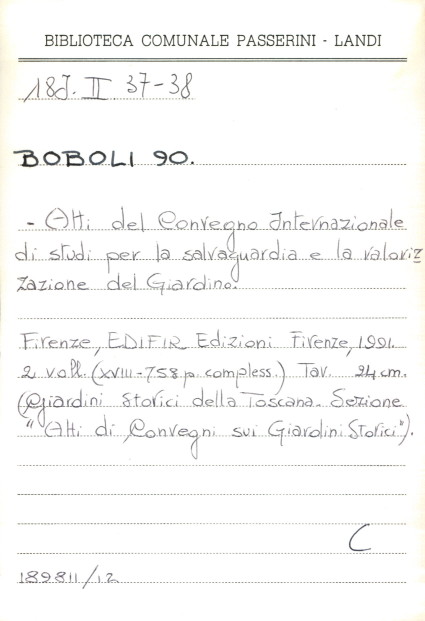 BIBLIOTECA COMUNALE PASSERINI - LANDI
18J. II 37-38
BOBOLI 90.
- Atti del Convegno Internazionale
di studi per la salvaguardia e la valoriz
zazione del Giardino.
Firenze, EDIFIR Edizioni Firenze, 1991.
2 voll. (XVIII-758 p. compless.) Tav. 24 cm.
(Giardini Storici della Toscana. Sezione
"Atti di Convegni sui Giardini Storici").
C
189811/12